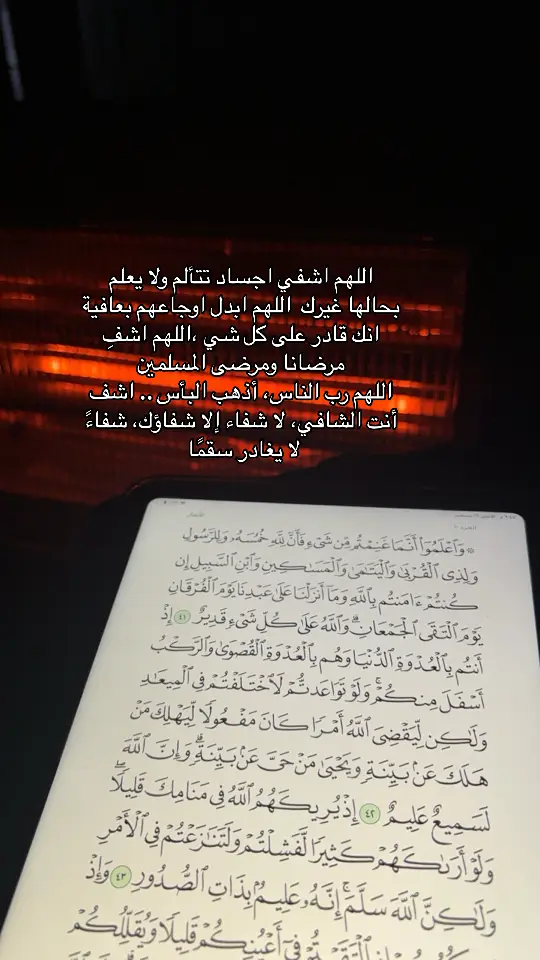 اللهم اشفي اجساد تتألم ولا يعلم
بحالها غيرك اللهم ابدل اوجاعهم بعافية
انك قادر على كل شي ،اللهم اشفِ
مرضانا ومرضى المسلمين
اللهم رب الناس، أذهب البأس .. اشف
أنت الشافي، لا شفاء إلا شفاؤك، شفاءً
لا يغادر سقمًا
۞ وَٱعْلَمُوٓا۟ أَنَّمَا غَنِمْتُم مِّن شَىْءٍ فَأَنَّ لِلَّهِ خُمُسَهُۥ وَلِلرَّسُولِ
وَلِذِى ٱلْقُرْبَىٰ وَٱلْيَتَـٰمَىٰ وَٱلْمَسَـٰكِينِ وَٱبْنِ ٱلسَّبِيلِ إِن
كُنتُمْ ءَامَنتُم بِٱللَّهِ وَمَآ أَنزَلْنَا عَلَىٰ عَبْدِنَا يَوْمَ ٱلْفُرْقَانِ
يَوْمَ ٱلْتَقَى ٱلْجَمْعَانِ ۗ وَٱللَّهُ عَلَىٰ كُلِّ شَىْءٍ قَدِيرٌ ٤١ إِذْ
أَنتُم بِٱلْعُدْوَةِ ٱلدُّنْيَا وَهُم بِٱلْعُدْوَةِ ٱلْقُصْوَىٰ وَٱلرَّكْبُ
أَسْفَلَ مِنكُمْ ۚ وَلَوْ تَوَاعَدتُّمْ لَٱخْتَلَفْتُمْ فِى ٱلْمِيعَـٰدِ ۙ
وَلَـٰكِن لِّيَقْضِىَ ٱللَّهُ أَمْرًا كَانَ مَفْعُولًا لِّيَهْلِكَ مَنْ
هَلَكَ عَنۢ بَيِّنَةٍ وَيَحْيَىٰ مَنْ حَىَّ عَنۢ بَيِّنَةٍ ۗ وَإِنَّ ٱللَّهَ
لَسَمِيعٌ عَلِيمٌ ٤٢ إِذْ يُرِيكَهُمُ ٱللَّهُ فِى مَنَامِكَ قَلِيلًا ۖ
وَلَوْ أَرَىٰكَهُمْ كَثِيرًا لَّفَشِلْتُمْ وَلَتَنَـٰزَعْتُمْ فِى ٱلْأَمْرِ
وَلَـٰكِنَّ ٱللَّهَ سَلَّمَ ۗ إِنَّهُۥ عَلِيمٌۢ بِذَاتِ ٱلصُّدُورِ ٤٣ وَإِذْ
فِىٓ أَعْيُنِكُمْ قَلِيلًا وَيُقَلِّلُكُمْ